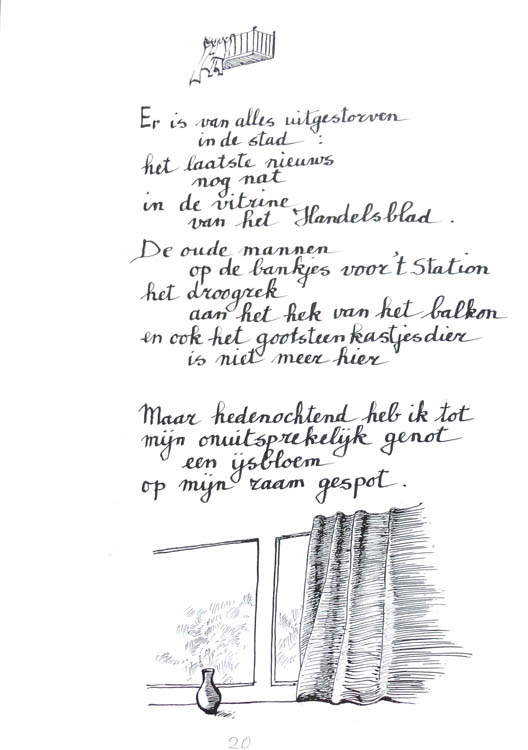 Er is van alles uitgestorven
in de stad :
het laatste nieuws
nog nat
in de vitrine
van het Handelsblad .
De oude mannen
op de bankjes voor 't Station
het droogrek
aan het hek van het balkon
en ook het gootsteenkastjesdier
is niet meer hier
Maar hedenochtend heb ik tot
mijn onuitsprekelijk genot
een ijsbloem
op mijn raam gespot .
20